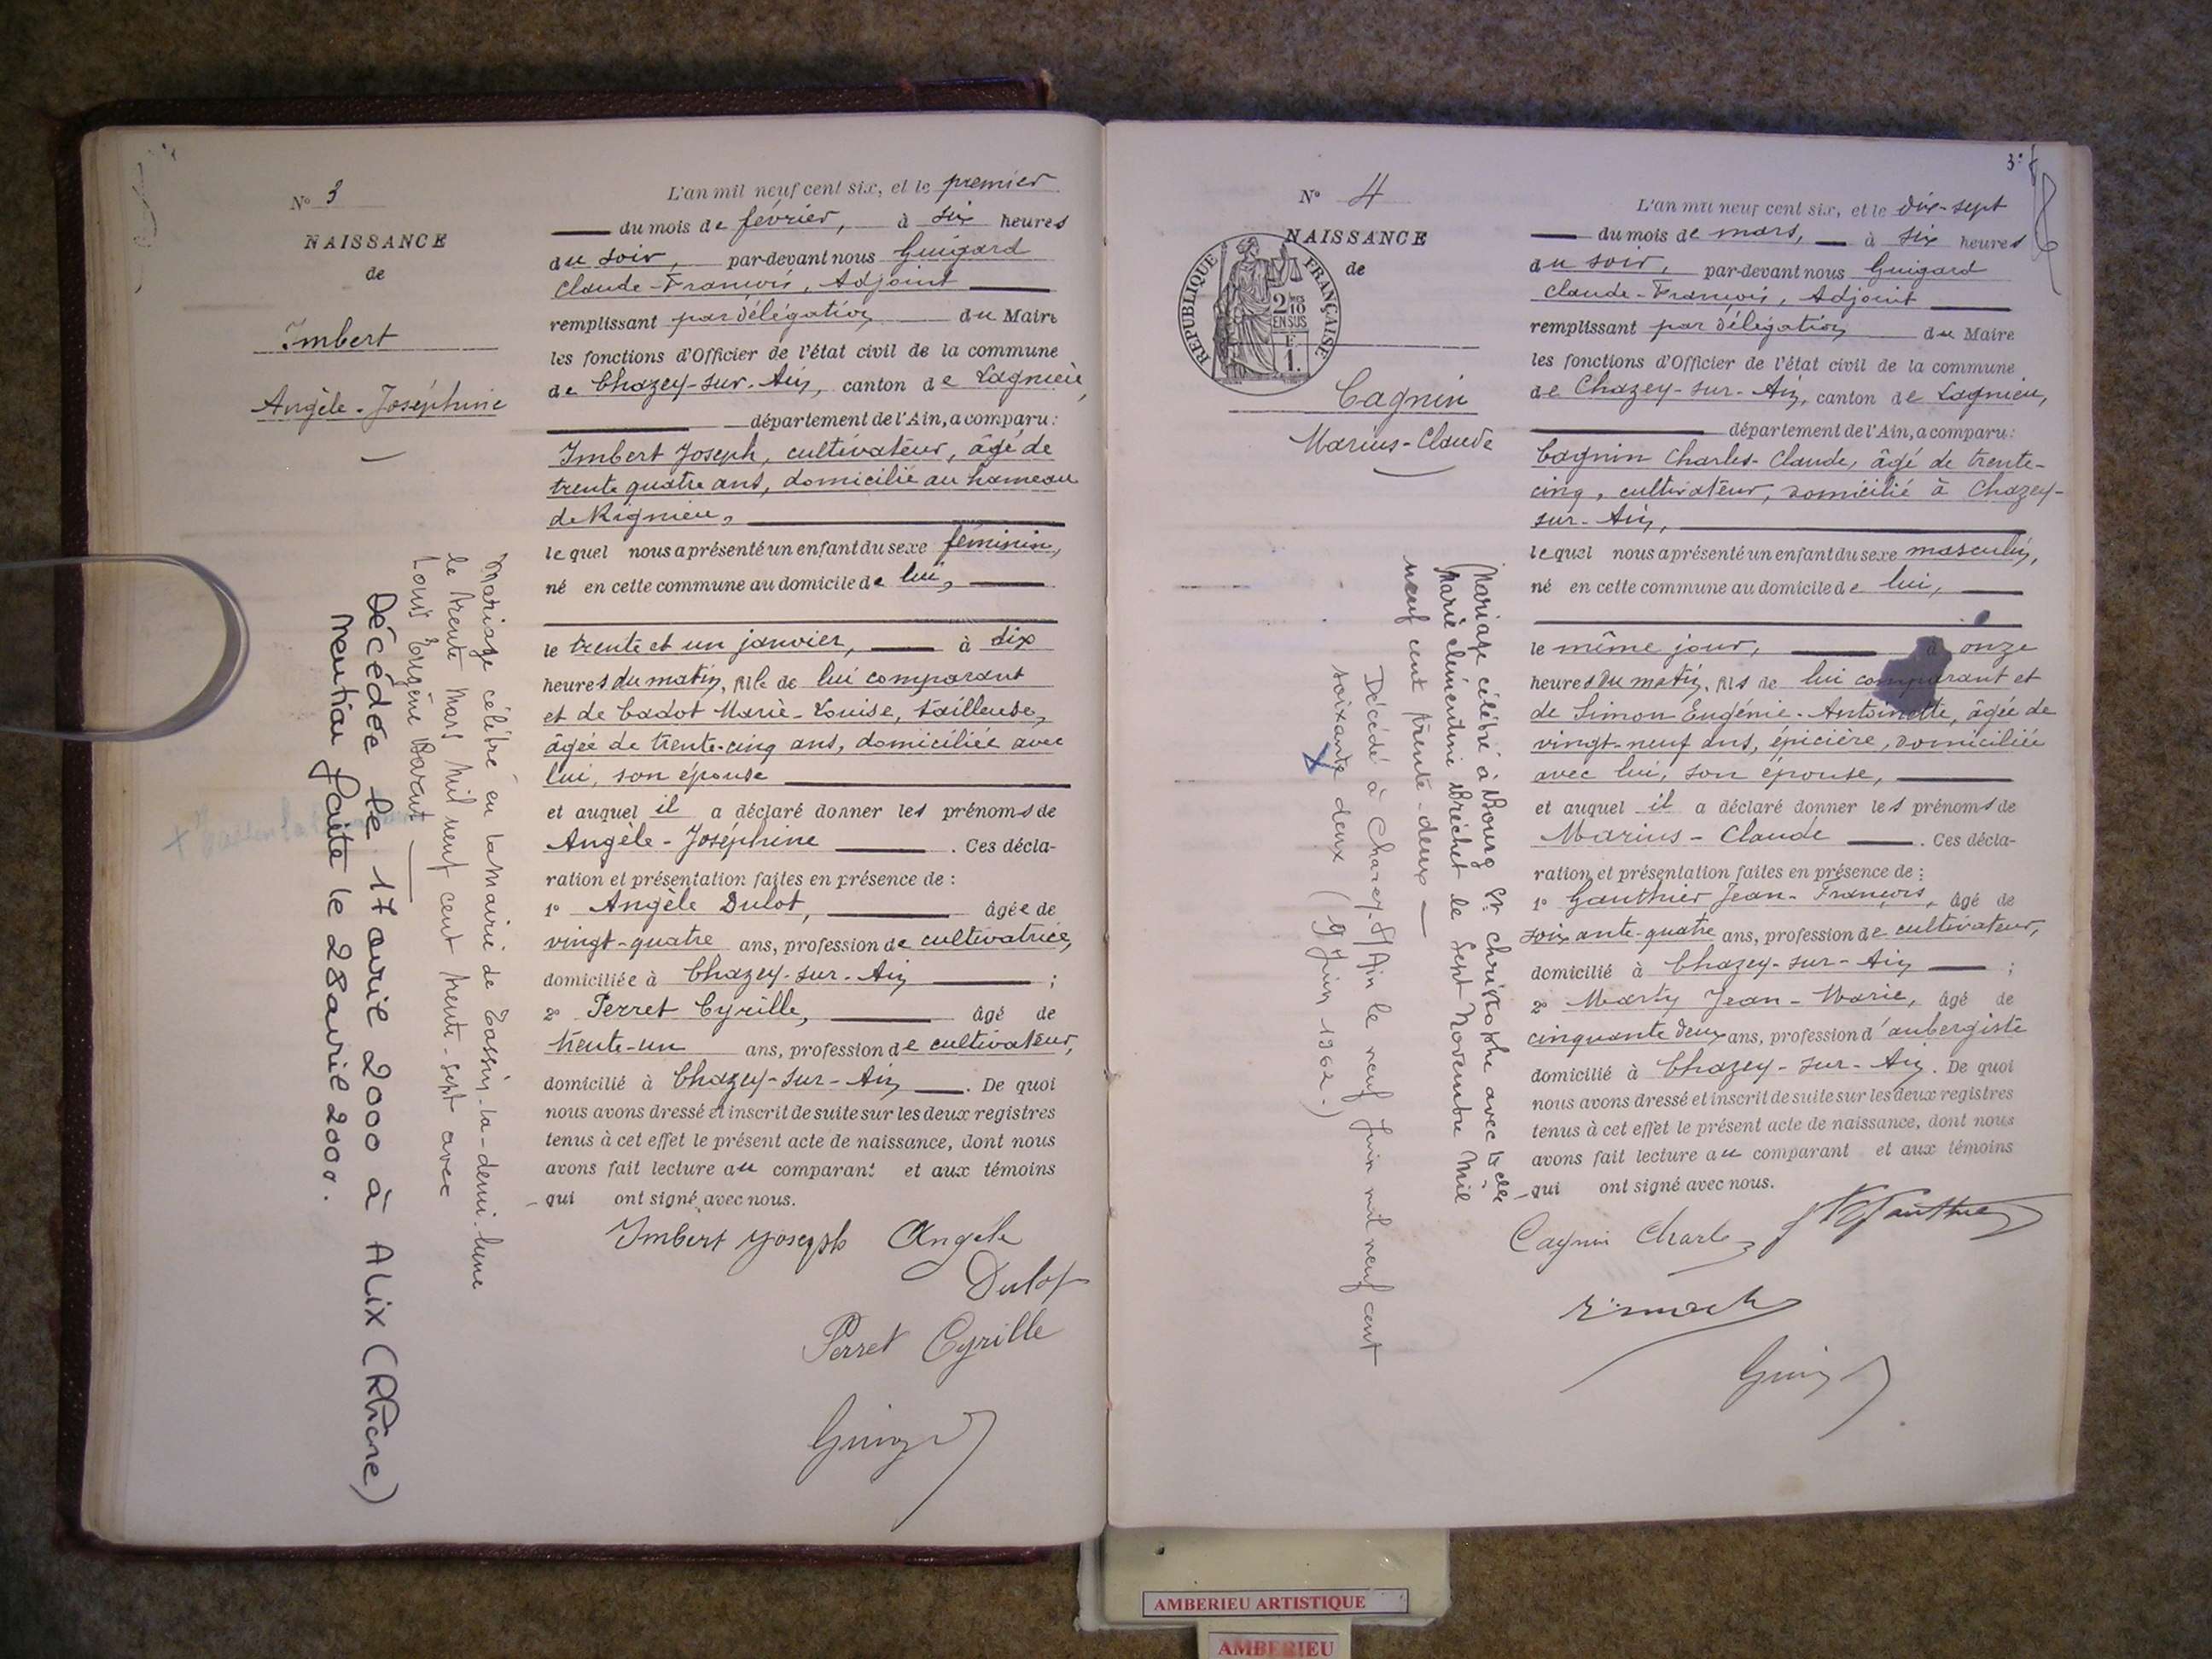 N° 3
NAISSANCE
de
Imbert
Angèle-Joséphine
L'an mil neuf cent six, et le premier
du mois de février, à six heures
du soir, par-devant nous Guigard
Claude-François, Adjoint
remplissant par délégation du Maire
les fonctions d'Officier de l'état civil de la commune
de Chazey-sur-Ain, canton de Lagnieu,
département de l'Ain, a comparu:
Imbert Joseph, cultivateur, âgé de
trente quatre ans, domicilié au hameau
de Rignieu,
lequel nous a présenté un enfant du sexe féminin,
né en cette commune au domicile de lui,
le trente et un janvier, à dix
heures du matin, fille de lui comparant
et de Cadot Marie-Louise, tailleuse,
âgée de trente-cinq ans, domiciliée avec
lui, son épouse
et auquel il a déclaré donner les prénoms de
Angèle-Joséphine. Ces décla-
ration et présentation faites en présence de :
1° Angèle Dulot, âgée de
vingt-quatre ans, profession de cultivatrice,
domiciliée à Chazey-sur-Ain ;
2° Perret Cyrille, âgé de
trente-un ans, profession de cultivateur,
domicilié à Chazey-sur-Ain. De quoi
nous avons dressé et inscrit de suite sur les deux registres
tenus à cet effet le présent acte de naissance, dont nous
avons fait lecture au comparant et aux témoins
qui ont signé avec nous.
Imbert Joseph Angèle
Dulot
Perret Cyrille
Mariage célébré en la mairie de Tassin-la-demi-lune
le trente Mars Mil neuf cent trente-sept avec
Louis Eugène
Décédée le 17 avril 2000 à ALIX (Rhône)
Mention faite le 28 avril 2000.
3
N° 4
NAISSANCE
de
RÉPUBLIQUE FRANÇAISE
2 10
EN SUS
1 F.
Cagnin
Marius-Claude
L'an mil neuf cent six, et le dix-sept
du mois de mars, à six heures
du soir, par-devant nous Guigard
Claude-François, Adjoint
remplissant par délégation du Maire
les fonctions d'Officier de l'état civil de la commune
de Chazey-sur-Ain, canton de Lagnieu,
département de l'Ain, a comparu:
Cagnin Charles-Claude, âgé de trente-
cinq, cultivateur, domicilié à Chazey-
sur-Ain,
lequel nous a présenté un enfant du sexe masculin,
né en cette commune au domicile de lui,
le même jour, à onze
heures du matin, fils de lui comparant et
de Simon Eugénie-Antoinette, âgée de
vingt-neuf ans, épicière, domiciliée
avec lui, son épouse,
et auquel il a déclaré donner les prénoms de
Marius-Claude. Ces décla-
ration et présentation faites en présence de :
1° Gauthier Jean-François, âgé de
soixante-quatre ans, profession de cultivateur,
domicilié à Chazey-sur-Ain ;
2° Marty Jean-Marie, âgé de
cinquante deux ans, profession d'aubergiste
domicilié à Chazey-sur-Ain. De quoi
nous avons dressé et inscrit de suite sur les deux registres
tenus à cet effet le présent acte de naissance, dont nous
avons fait lecture au comparant et aux témoins
qui ont signé avec nous.
Cagnin Charles
Mariage célébré à Bourg St Christophe avec
Marie Clémentine Bréchet le Sept Novembre Mil
neuf cent trente-deux
Décédé à Chazey s/Ain le neuf Juin mil neuf cent
soixante deux (9 Juin 1962.)
AMBERIEU ARTISTIQUE
AMBERIEU